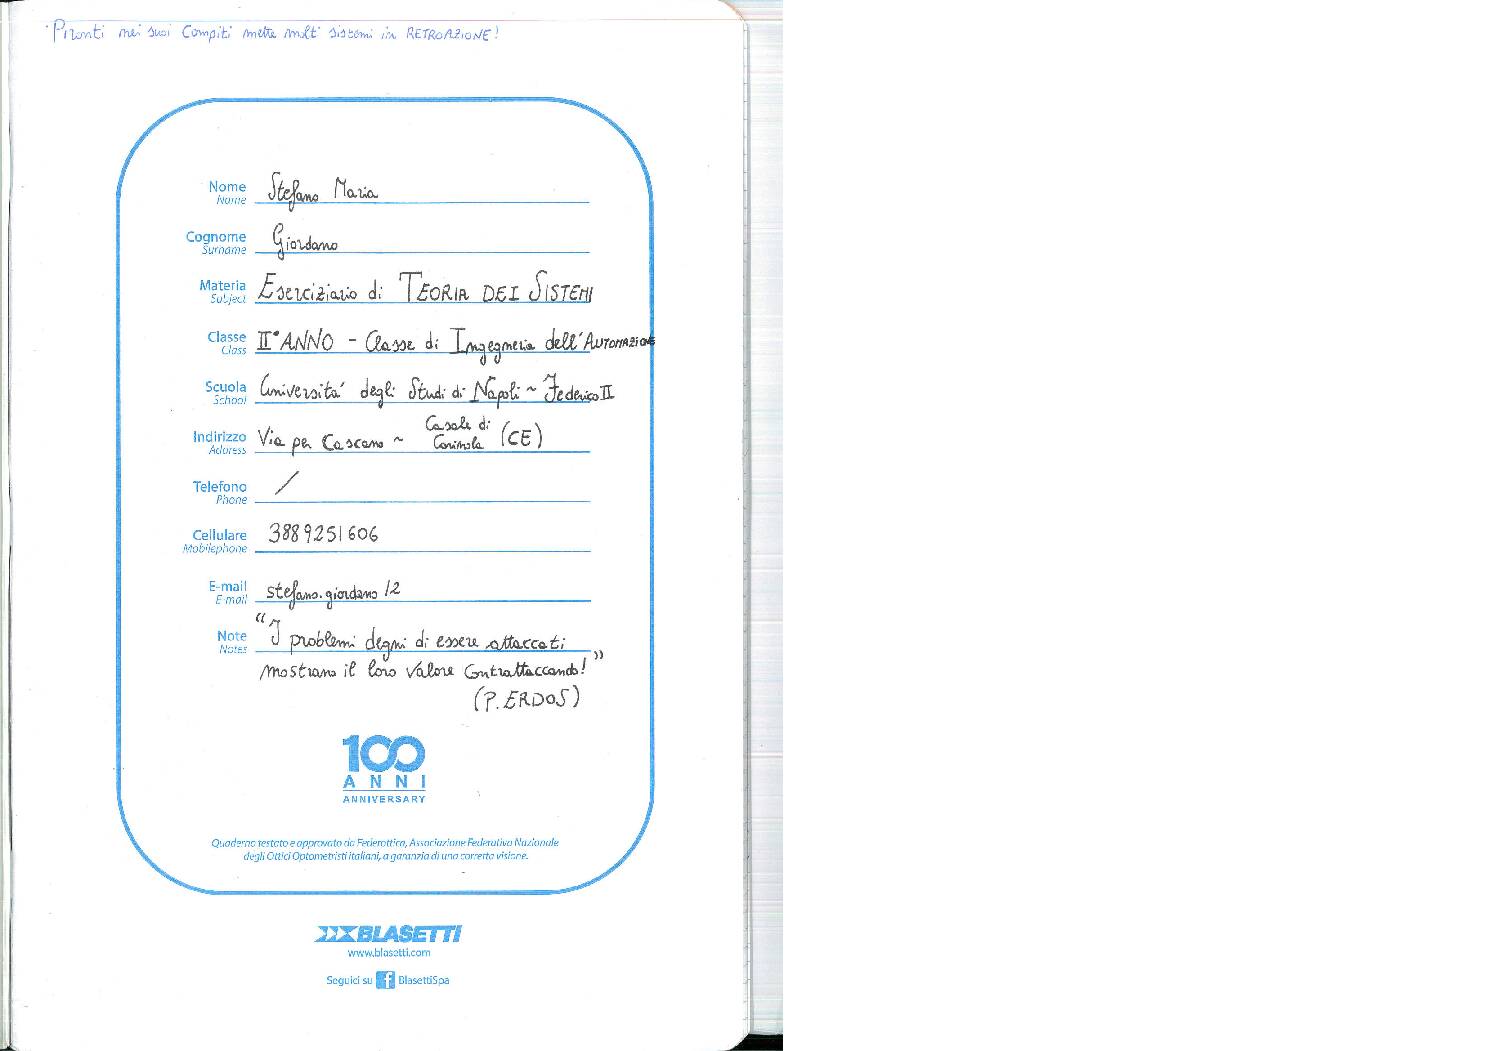 Pironti nei suoi compiti mette molti sistemi in RETROAZIONE!
Nome Stefano Maria
Name
Cognome Giordano
Surname
Materia Eserciziario di TEORIA DEI SISTEMI
Subject
Classe II° ANNO - Classe di Ingegneria dell'AUTOMAZIONE
Class
Scuola Università degli Studi di Napoli ~ Federico II
School
Indirizzo Via per Cascano ~ Casale di Carinola (CE)
Address
Telefono /
Phone
Cellulare 3889251606
Mobilephone
E-mail stefano.giordano12
E-mail
Note "I problemi degni di essere attaccati
Notes
mostrano il loro valore contrattaccando!"
(P. ERDOS)
100
ANNI
ANNIVERSARY
Quaderno testato e approvato da Federottica, Associazione Federativa Nazionale
degli Ottici Optometristi italiani, a garanzia di una corretta visione.
BLASETTI
www.blasetti.com
Seguici su f BlasettiSpa